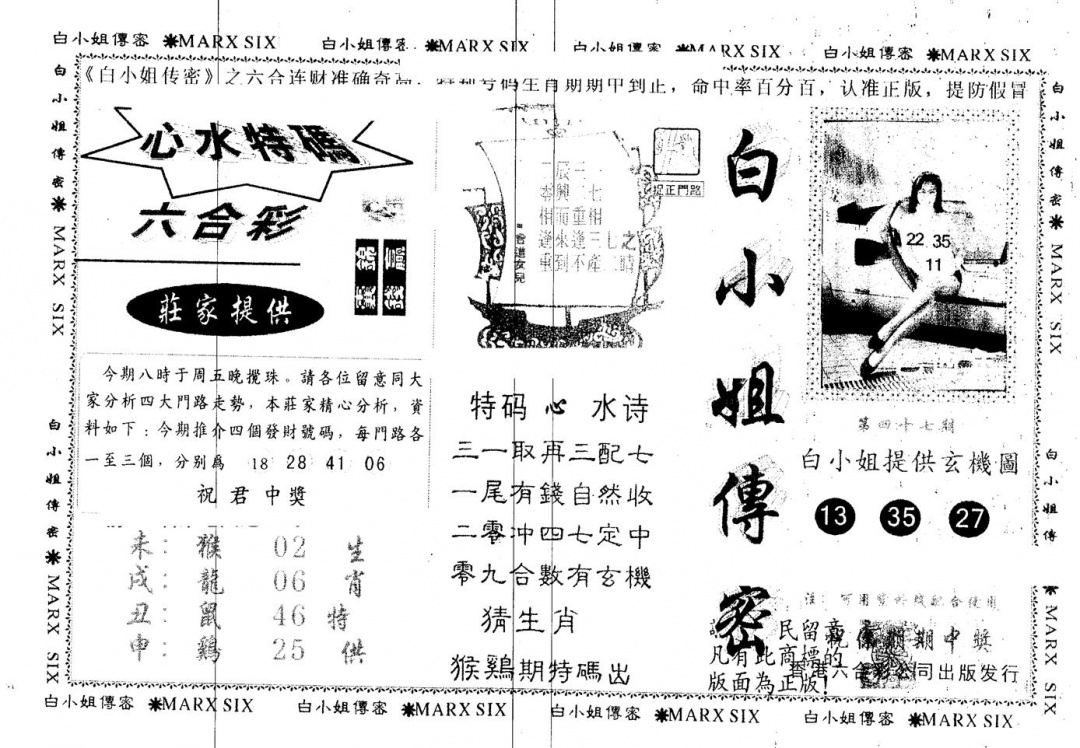 白小姐傳密 ✷MARX SIX 白小姐傳密 ✷MARX SIX 白小姐傳密 ✷MARX SIX 白小姐傳密 ✷MARX SIX
《白小姐传密》之六合连财准确奇高，特别号码生肖期期中到止，命中率百分百，认准正版，提防假冒
白小姐傳密✷ MARX SIX
白小姐傳密✷ MARX SIX
心水特碼
六合彩
錦囊
贏錢
莊家提供
今期八時于周五晚攪珠。請各位留意同大
家分析四大門路走勢，本莊家精心分析，資
料如下：今期推介四個發財號碼，每門路各
一至三個，分别爲 18 28 41 06
祝君中獎
未：猴 02 生
戌：龍 06 肖
丑：鼠 46 特
申：鷄 25 供
捉正門路
相而重相
逢來逢三七之
重到不產
特码心水诗
三一取再三配七
一尾有錢自然收
二零冲四七定中
零九合數有玄機
猜生肖
猴鷄期特碼出
白小姐傳密
22 35
11
第四十七期
白小姐提供玄機圖
13 35 27
注：可用紫外线配合使用
民留意
凡有此商標的
版面為正版!
期期中獎
香港六合彩公司出版发行
白小姐傳密✷ MARX SIX
白小姐傳
✷ MARX SIX
白小姐傳密 ✷MARX SIX 白小姐傳密 ✷MARX SIX 白小姐傳密 ✷MARX SIX 白小姐傳密 ✷MARX SIX